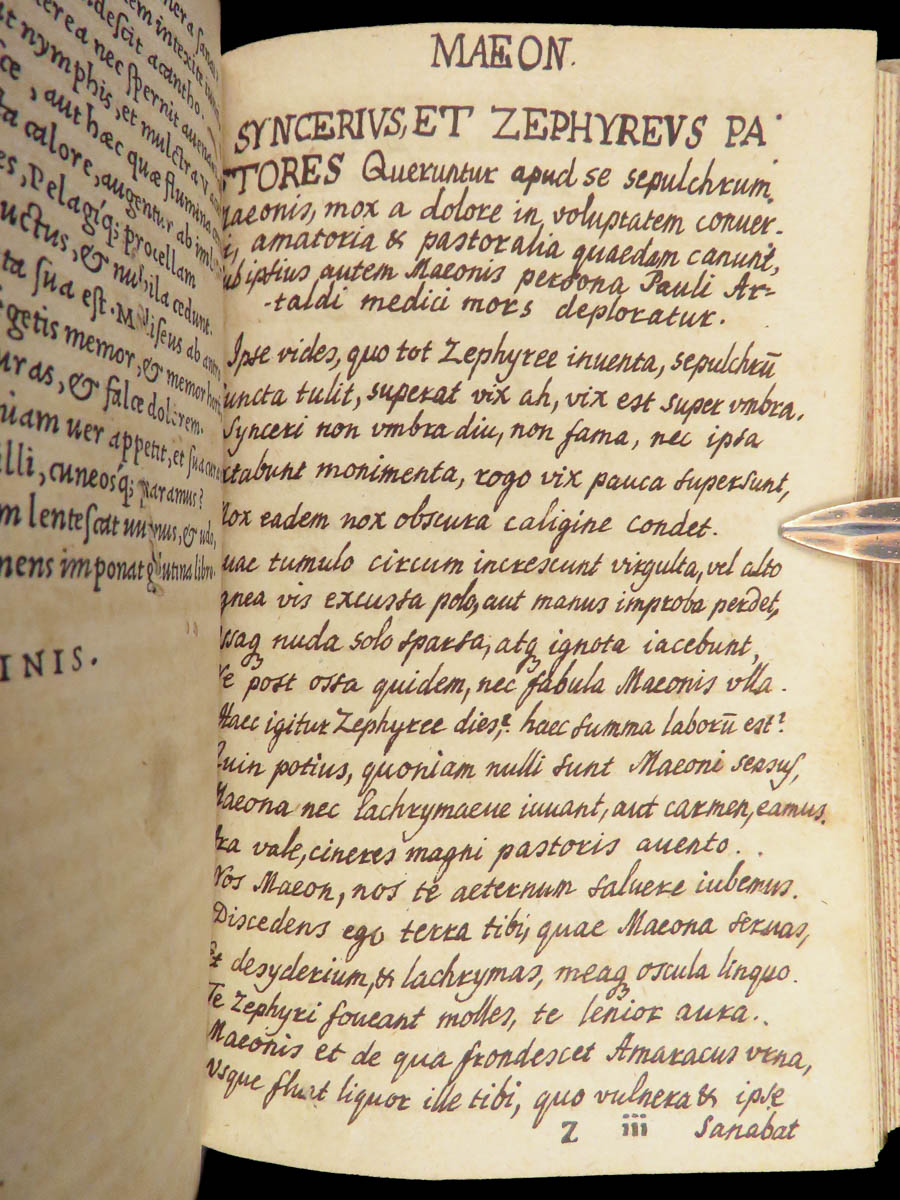 intexite
descit acantho.
erea nec spernit auena
nymphis, et mulctra
aut hæc quæ flumina
ta calore, augentur ab
es, Pelagiq; procellam
uctus, & nubila cedunt.
ta sua est. Meliseus ab
getis memor, & memor
uras, & falce dolorem.
niam uer appetit, et sua
illi, cuneosq; paramus?
m lentescat uimus, & udo,
nens imponat glutina libro.
INIS.
MAEON.
SYNCERIVS, ET ZEPHYREVS PA
STORES Queruntur apud se sepulchrum
Maeonis, mox a dolore in voluptatem conuer-
si, amatoria & pastoralia quaedam canunt,
sub ipsius autem Maeonis persona Pauli Ar-
-taldi medici mors deploratur.
Ipse vides, quo tot Zephyree inuenta, sepulchrū
Iuncta tulit, superat vix ah, vix est super vmbra.
Synceri non vmbra diu, non fama, nec ipsa
Extabunt monimenta, rogo vix pauca supersunt,
Mox eadem nox obscura caligine condet.
Quae tumulo circum increscunt virgulta, vel alto
Ignea vis excussa polo, aut manus improba perdet,
Ossaq nuda solo sparsa, atq ignota iacebunt,
Ne post ossa quidem, nec fabula Maeonis vlla.
Haec igitur Zephyree dies? haec summa laborū est?
Quin potius, quoniam nulli sunt Maeoni sensus,
Maeona nec lachrymaeue iuuant, aut carmen, eamus.
vale, cineres magni pastoris auento..
Nos Maeon, nos te aeternum saluere iubemus.
Discedens ego terra tibi, quae Maeona seruas,
Et desyderium, & lachrymas, meaq oscula linquo.
Te Zephyri foueant molles, te lenior aura..
Maeonis et de qua frondescet Amaracus vrna,
Vsque fluat liquor ille tibi, quo vulnera & ipse
Z iii sanabat